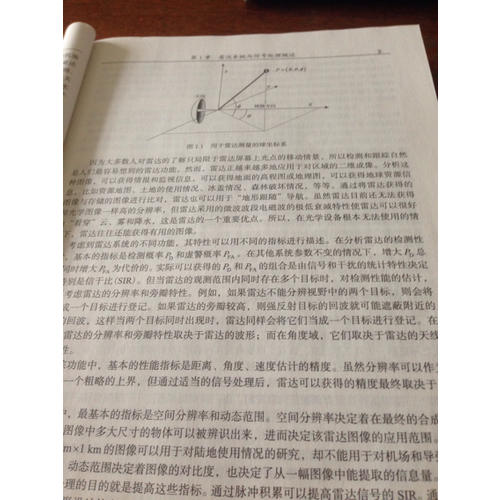 第1章 雷达系统与信号处理概述 3
z
P=(R,θ,φ)
天线
R
y
θ
φ
x
图 1.1 用于雷达测量的球坐标系
因为大多数人对雷达的了解只局限于雷达屏幕上光点的移动情景，所以检测和跟踪自然
是人们最容易想到的雷达功能。然而，雷达正越来越多地应用于对区域的二维成像。分析这
种图像，可以获得情报和监视信息，可以获得地面的高程图或地理图，可以获得地球资源信
息，比如资源地图、土地的使用情况、冰盖情况、森林破坏情况，等等。通过将雷达获得的
图像与存储的图像进行对比，雷达也可以用于“地形跟随”导航。虽然雷达目前还无法获得
光学图像一样高的分辨率，但雷达采用的微波波段电磁波的极低衰减特性使雷达可以很好
“看穿”云、雾和降水，这是雷达的一个重要优点。所以，在光学设备根本无法使用的情
下，雷达往往还能获得有用的图像。
考虑到雷达系统的不同功能，其特性可以用不同的指标进行描述。在分析雷达的检测性
，基本的指标是检测概率 PD 和虚警概率 PFA。在其他系统参数不变的情况下，增大 PD 总
同时增大 PFA 为代价的。实际可以获得的 PD 和 PFA 的组合是由信号和干扰的统计特性决定
特别是信干比(SIR)。但当雷达的观测范围内同时存在多个目标时，对检测性能的估计，
考虑雷达的分辨率和旁瓣特性。例如，如果雷达不能分辨视野中的两个目标，则会将
成一个目标进行登记。如果雷达的旁瓣较高，则强反射目标的回波就可能遮蔽附近的
的回波。这样当两个目标同时出现时，雷达同样会将它们当成一个目标进行登记。在
雷达的分辨率和旁瓣特性取决于雷达的波形；而在角度域，它们取决于雷达的天线
性。
踪功能中，基本的性能指标是距离、角度、速度估计的精度。虽然分辨率可以作为
一个粗略的上界，但通过适当的信号处理后，雷达可以获得的精度最终取决于
中，最基本的指标是空间分辨率和动态范围。空间分辨率决定着在最终的合成
图像中多大尺寸的物体可以被辨识出来，进而决定该雷达图像的应用范围。
m×1 km 的图像可以用于对陆地使用情况的研究，却不能用于对机场和导弹
动态范围决定着图像的对比度，也决定了从一幅图像中能提取的信息量。
理的目的就是提高这些指标。通过脉冲积累可以提高雷达信号的 SIR。